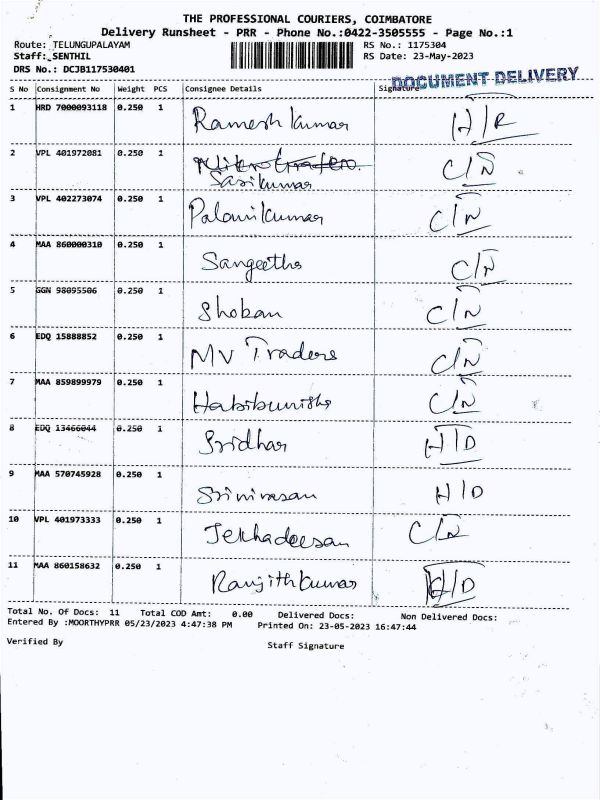 THE PROFESSIONAL COURIERS, COIMBATORE
Delivery Runsheet - PRR - Phone No.:0422-3505555 - Page No.:1
Route: TELUNGUPALAYAM RS No.: 1175304
Staff: SENTHIL RS Date: 23-May-2023
DRS No.: DCJB117530401
DOCUMENT DELIVERY
S No Consignment No Weight PCS Consignee Details Signature
1 HRD 7000093118 0.250 1 Ramesh kumar H/R
2 VPL 401972081 0.250 1 C/N
Sasikumar
3 VPL 402273074 0.250 1 Palanikumar C/N
4 MAA 860000310 0.250 1 Sangeetha C/N
5 GGN 98095506 0.250 1 Shoban C/N
6 EDQ 15888852 0.250 1 MV Traders C/N
7 MAA 859899979 0.250 1 Habibunisha C/N
8 EDQ 13466044 0.250 1 Sridhar H/D
9 MAA 570745928 0.250 1 Srinivasan H/D
10 VPL 401973333 0.250 1 Jekhadeesan C/N
11 MAA 860158632 0.250 1 Ranjithkumar H/D
Total No. Of Docs: 11 Total COD Amt: 0.00 Delivered Docs: Non Delivered Docs:
Entered By :MOORTHYPRR 05/23/2023 4:47:38 PM Printed On: 23-05-2023 16:47:44
Verified By Staff Signature